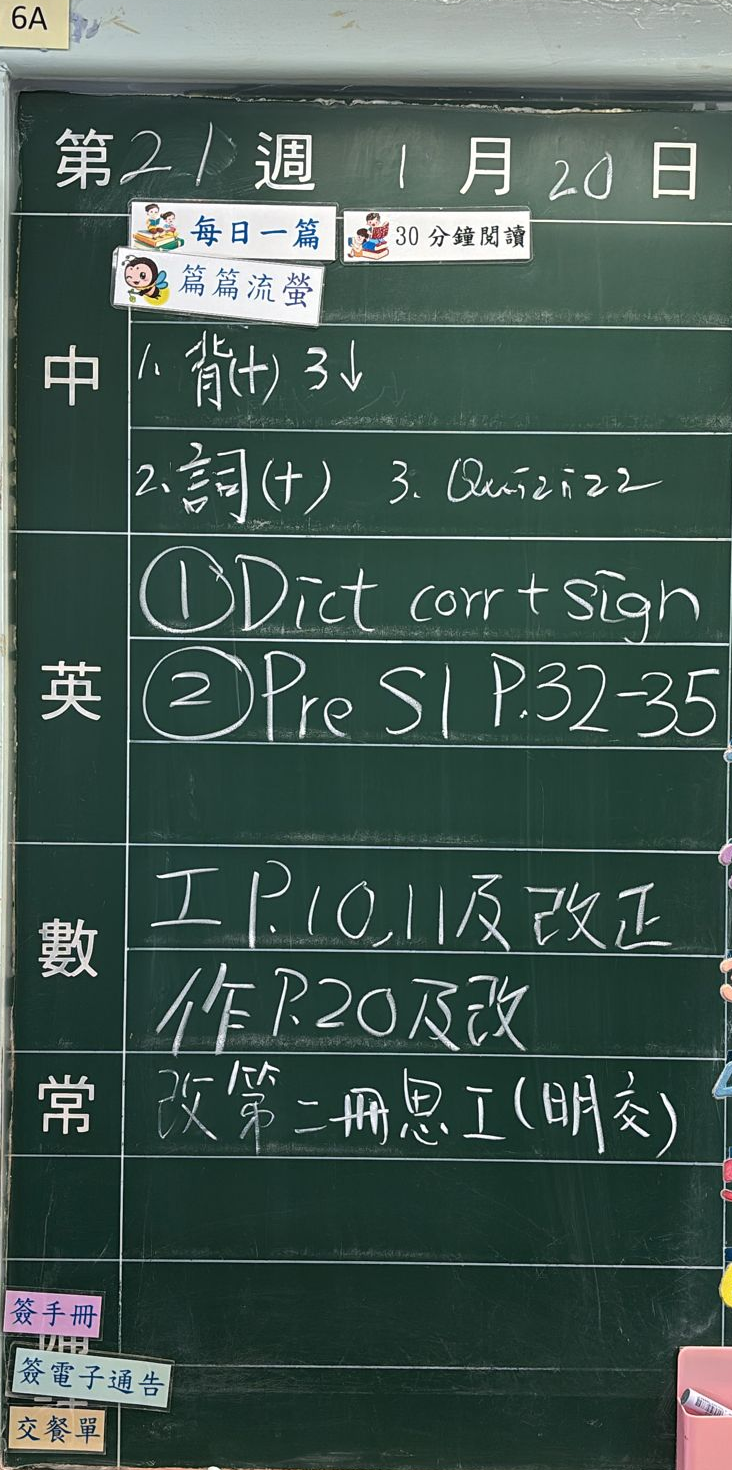 6A
第21週 1月20日
每日一篇 30分鐘閱讀
篇篇流螢
中
1. 背(十) 3↓
2. 詞(十) 3. Quizizz
英
①Dict corr + sign
②Pre S1 P.32-35
數
工 P.10,11及改正
作 P.20及改
常
改第二冊思工(明交)
簽手冊
簽電子通告
交餐單